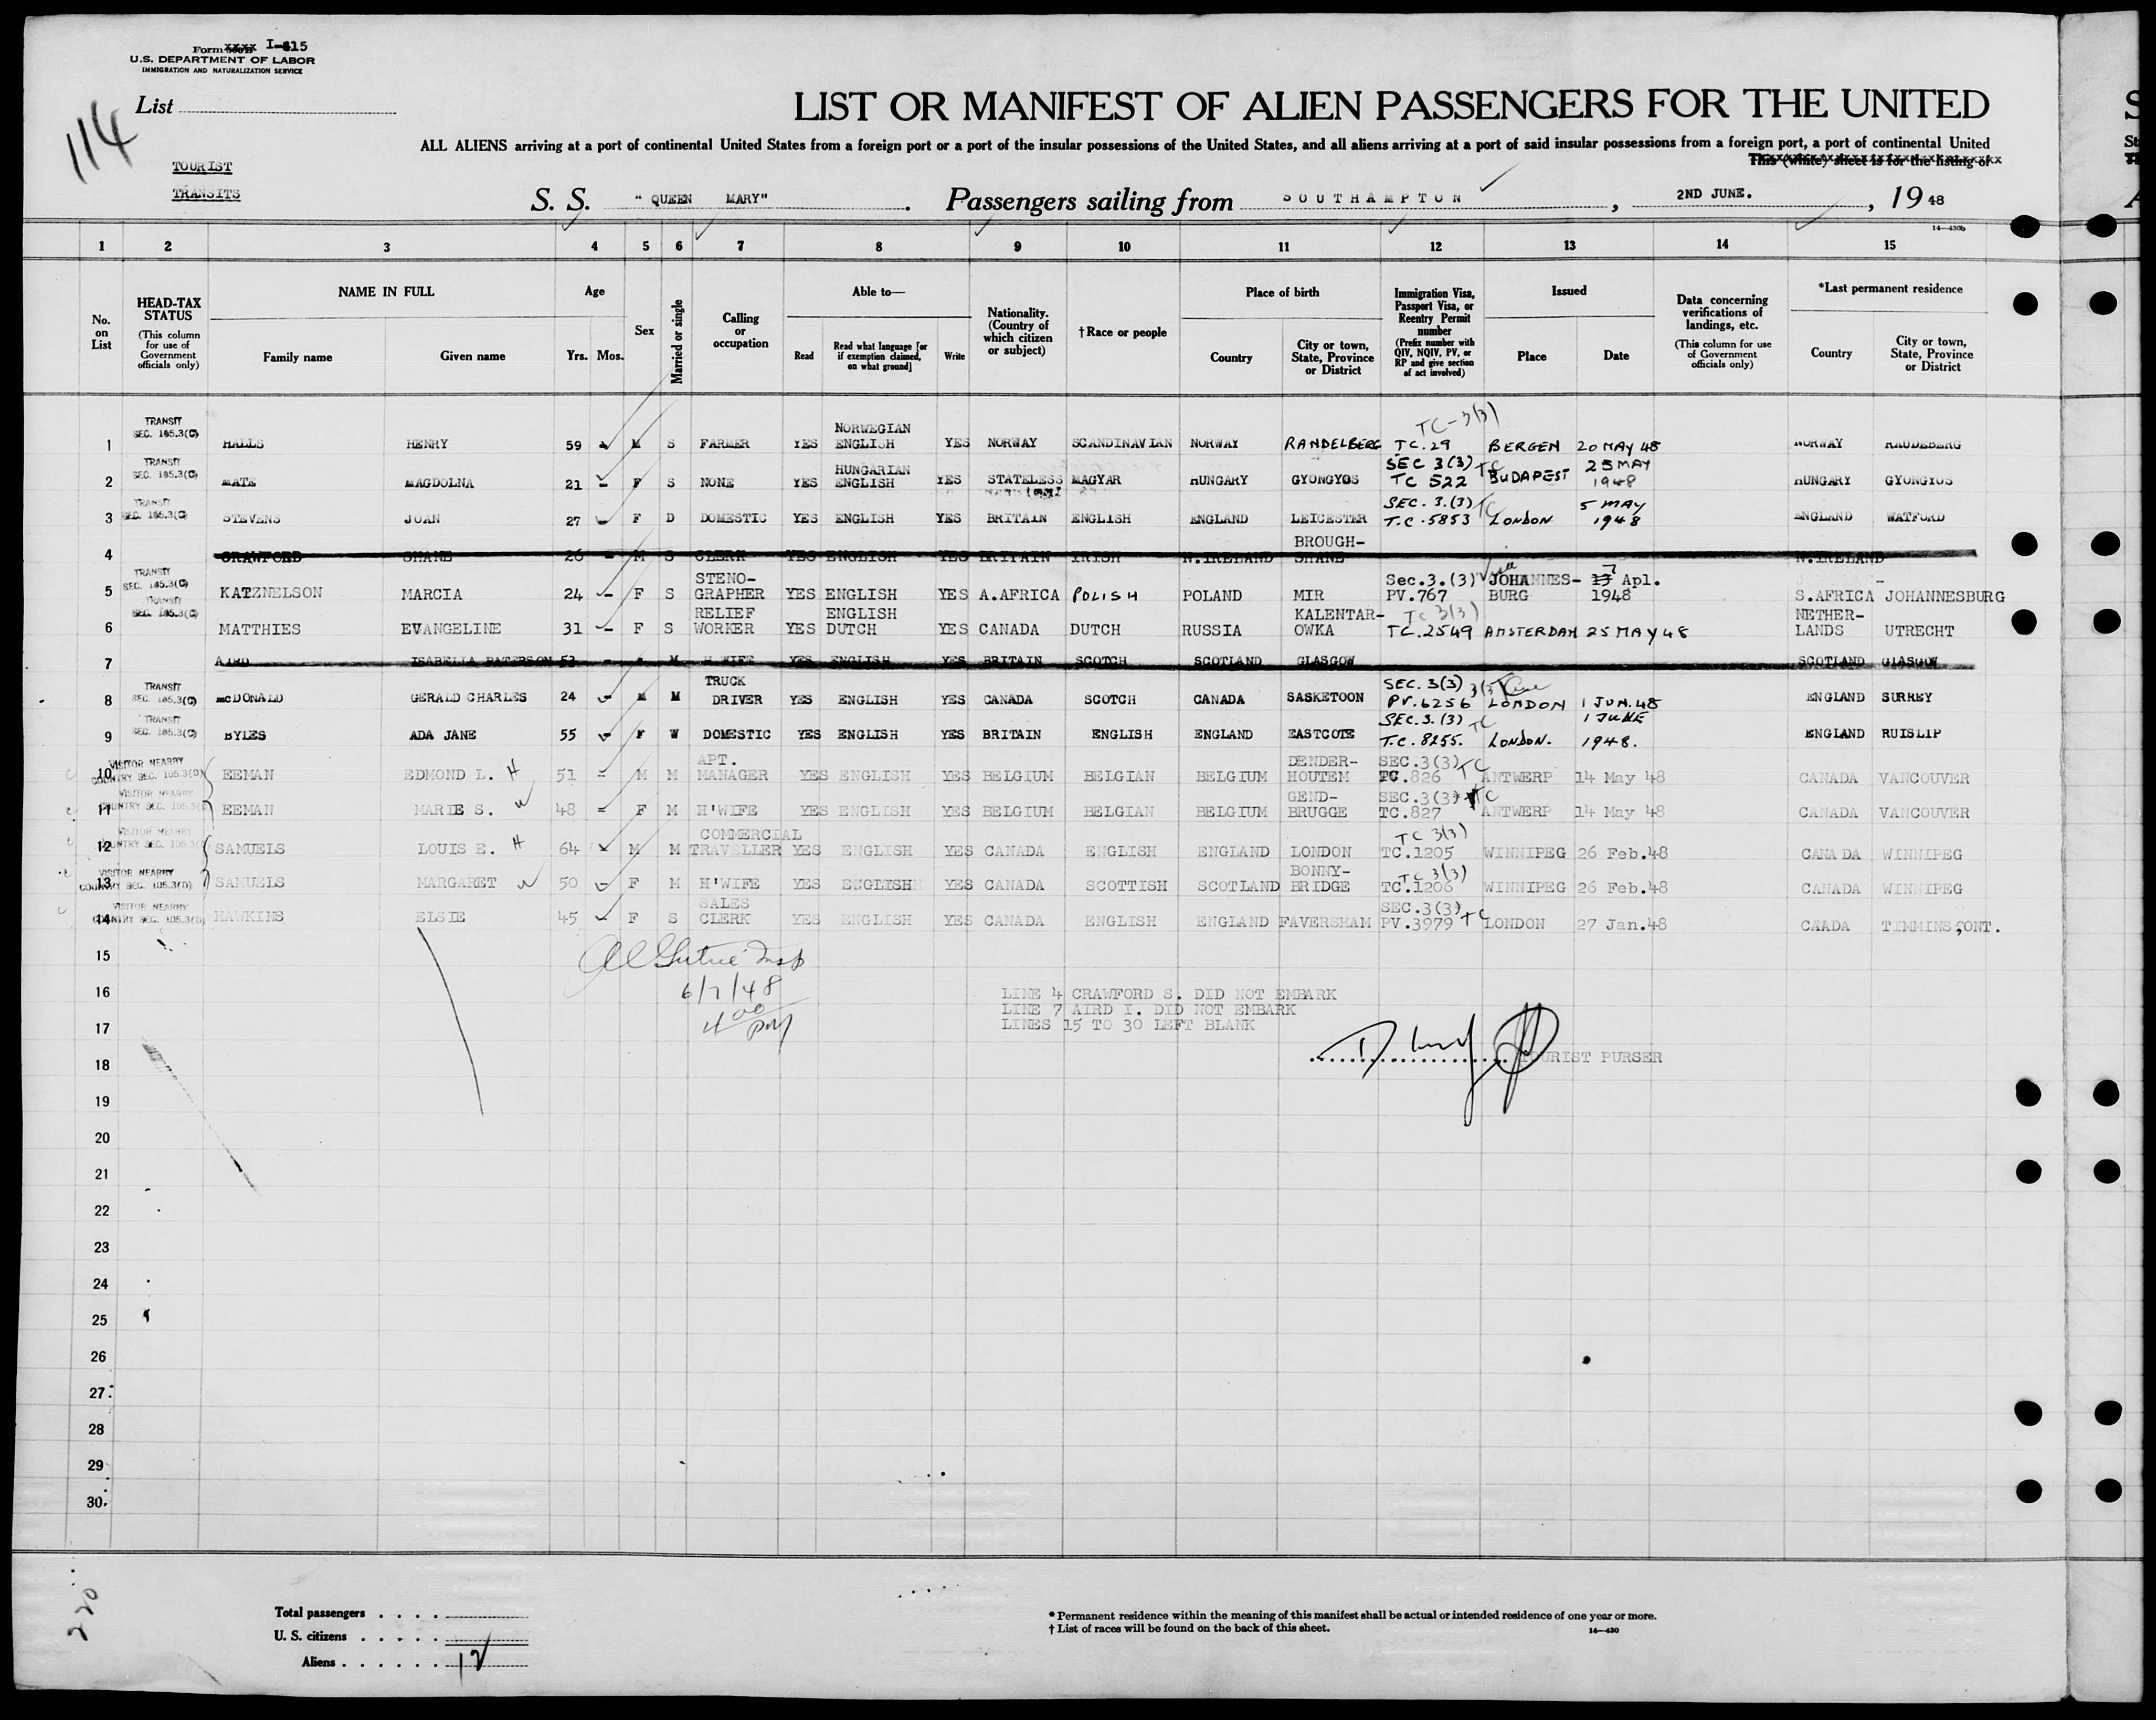 Form I-415
U.S. DEPARTMENT OF LABOR
IMMIGRATION AND NATURALIZATION SERVICE
List
114
LIST OR MANIFEST OF ALIEN PASSENGERS FOR THE UNITED
ALL ALIENS arriving at a port of continental United States from a foreign port or a port of the insular possessions of the United States, and all aliens arriving at a port of said insular possessions from a foreign port, a port of continental United
This (white) sheet is for the listing of
TOURIST
TRANSITS
S. S. "QUEEN MARY". Passengers sailing from SOUTHAMPTON, 2ND JUNE., 19 48
14—430b
1 2 3 4 5 6 7 8 9 10 11 12 13 14 15
No. on List
HEAD-TAX STATUS
(This column for use of Government officials only)
NAME IN FULL
Family name Given name
Age
Yrs. Mos.
Sex
Married or single
Calling or occupation
Able to—
Read Read what language [or if exemption claimed, on what ground] Write
Nationality. (Country of which citizen or subject)
†Race or people
Place of birth
Country City or town, State, Province or District
Immigration Visa, Passport Visa, or Reentry Permit number
(Prefix number with QIV, NQIV, PV, or RP and give section of act involved)
Issued
Place Date
Data concerning verifications of landings, etc.
(This column for use of Government officials only)
*Last permanent residence
Country City or town, State, Province or District
TRANSIT NORWEGIAN TC-3(3)
1 SEC. 105.3(C) HALLS HENRY 59 - M S FARMER YES ENGLISH YES NORWAY SCANDINAVIAN NORWAY RANDELBERG TC.29 BERGEN 20 MAY 48 NORWAY RAUDEBERG
TRANSIT HUNGARIAN SEC 3(3) TC 25 MAY
2 SEC. 105.3(C) MATE MAGDOLNA 21 - F S NONE YES ENGLISH YES STATELESS MAGYAR HUNGARY GYONGYOS TC 522 BUDAPEST 1948 HUNGARY GYONGYOS
TRANSIT SEC. 3.(3) TC 5 MAY
3 SEC. 105.3(C) STEVENS JOAN 27 - F D DOMESTIC YES ENGLISH YES BRITAIN ENGLISH ENGLAND LEICESTER T.C.5853 LONDON 1948 ENGLAND WATFORD
BROUGH-
4 CRAWFORD SHANE 26 - M S CLERK YES ENGLISH YES BRITAIN IRISH N.IRELAND SHANE N.IRELAND
TRANSIT STENO- Sec.3.(3) JOHANNES- 13 7 Apl.
5 SEC. 105.3(C) KATZNELSON MARCIA 24 - F S GRAPHER YES ENGLISH YES A.AFRICA POLISH POLAND MIR PV.767 BURG 1948 S.AFRICA JOHANNESBURG
TRANSIT RELIEF ENGLISH KALENTAR- TC 3(3) NETHER-
6 SEC. 105.3(C) MATTHIES EVANGELINE 31 - F S WORKER YES DUTCH YES CANADA DUTCH RUSSIA OWKA TC.2549 AMSTERDAM 25 MAY 48 LANDS UTRECHT
7 AIRD ISABELLA PATERSON 53 - M H'WIFE YES ENGLISH YES BRITAIN SCOTCH SCOTLAND GLASGOW SCOTLAND GLASGOW
TRANSIT TRUCK SEC. 3(3) 3(3)
8 SEC. 105.3(C) McDONALD GERALD CHARLES 24 - M M DRIVER YES ENGLISH YES CANADA SCOTCH CANADA SASKETOON PV.6256 LONDON 1 JUN.48 ENGLAND SURREY
TRANSIT SEC.3.(3) TC 1 JUNE
9 SEC. 105.3(C) BYLES ADA JANE 55 - F W DOMESTIC YES ENGLISH YES BRITAIN ENGLISH ENGLAND EASTCOTE T.C.8255. LONDON. 1948. ENGLAND RUISLIP
VISITOR NEARBY APT. DENDER- SEC.3(3) TC
10 COUNTRY SEC. 105.3(D) EEMAN EDMOND L. H 51 - M M MANAGER YES ENGLISH YES BELGIUM BELGIAN BELGIUM HOUTEM TC.826 ANTWERP 14 May 48 CANADA VANCOUVER
VISITOR NEARBY GEND- SEC.3(3) TC
11 COUNTRY SEC. 105.3(D) EEMAN MARIE S. W 48 - F M H'WIFE YES ENGLISH YES BELGIUM BELGIAN BELGIUM BRUGGE TC.827 ANTWERP 14 May 48 CANADA VANCOUVER
VISITOR NEARBY COMMERCIAL TC 3(3)
12 COUNTRY SEC. 105.3(D) SAMUELS LOUIS E. H 64 - M M TRAVELLER YES ENGLISH YES CANADA ENGLISH ENGLAND LONDON TC.1205 WINNIPEG 26 Feb.48 CANADA WINNIPEG
VISITOR NEARBY BONNY- TC 3(3)
13 COUNTRY SEC. 105.3(D) SAMUELS MARGARET W 50 - F M H'WIFE YES ENGLISH YES CANADA SCOTTISH SCOTLAND BRIDGE TC.1206 WINNIPEG 26 Feb.48 CANADA WINNIPEG
VISITOR NEARBY SALES SEC.3(3)
14 COUNTRY SEC. 105.3(D) HAWKINS ELSIE 45 - F S CLERK YES ENGLISH YES CANADA ENGLISH ENGLAND FAVERSHAM PV.3979 TC LONDON 27 Jan.48 CAADA TIMMINS,ONT.
15
Insp
16 6/7/48 LINE 4 CRAWFORD S. DID NOT EMBARK
LINE 7 AIRD I. DID NOT EMBARK
17 4 00 PM LINES 15 TO 30 LEFT BLANK
18 TOURIST PURSER
19
20
21
22
23
24
25
26
27
28
29
30
220
Total passengers
U. S. citizens
Aliens 12
* Permanent residence within the meaning of this manifest shall be actual or intended residence of one year or more.
† List of races will be found on the back of this sheet.
14—430